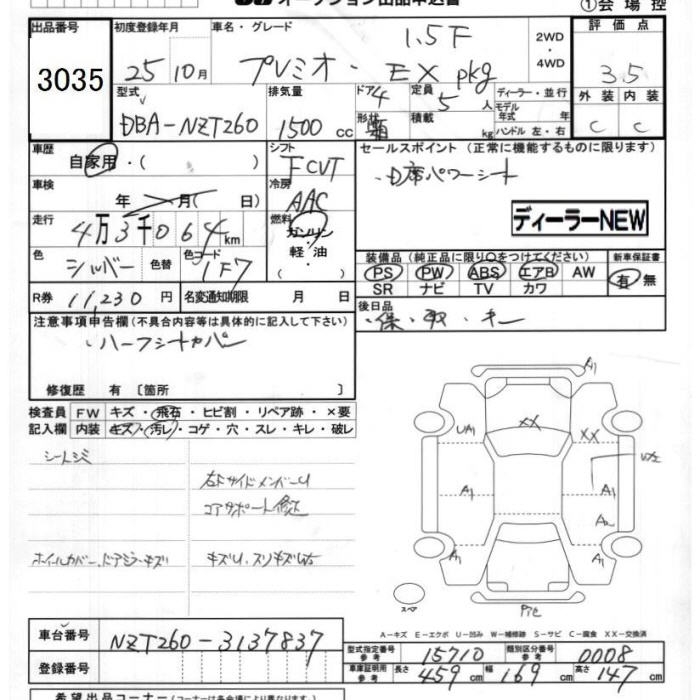 オークション出品申込書
①会場控
出品番号 初度登録年月 車名・グレード 1.5F 2WD・4WD 評価点
3035 25年10月 プレミオ・EX pkg 3.5
型式 排気量 ドア 4 定員 5人 ディーラー・並行 外装 内装
DBA-NZT260 1500cc 形状 箱 積載 kg モデル年式 年 ハンドル左・右 C C
車歴 自家用・( ) シフト FCVT セールスポイント(正常に機能するものに限ります)
車検 年 月( 日) 冷房 AAC ・D席パワーシート
走行 4万3千064km 燃料 ガソリン・軽油 ディーラーNEW
色 シルバー 色替 色コード 1F7 装備品(純正品に限り○をつけてください) 新車保証書
PS PW ABS エアB AW 有・無
SR ナビ TV カワ
R券 11,230円 名変通知期限 月 日 後日品
注意事項申告欄(不具合内容等は具体的に記入して下さい) ・保・取・キー
・ハーフシートカバー
修復歴 有 [箇所 ]
検査員記入欄 FW キズ・飛石・ヒビ割・リペア跡・×要
内装 キズ・汚レ・コゲ・穴・スレ・キレ・破レ
シートシミ
右FサイドメンバーU
コアサポート修正
ホイールカバー、ドアミラーキズ キズU、スリキズ
A1
XX
UA1 XX
A1 A1
A2
A1 A1
スペア
A-キズ E-エクボ U-凹み W-補修跡 S-サビ C-腐食 XX-交換済
車台番号 NZT260-3137837
型式指定番号 参考 15710 類別区分番号 参考 0008
登録番号 車庫証明用 参考 長さ 459cm 幅 169cm 高さ 147cm
希望出品コーナー(コーナーは各会場により異なります)